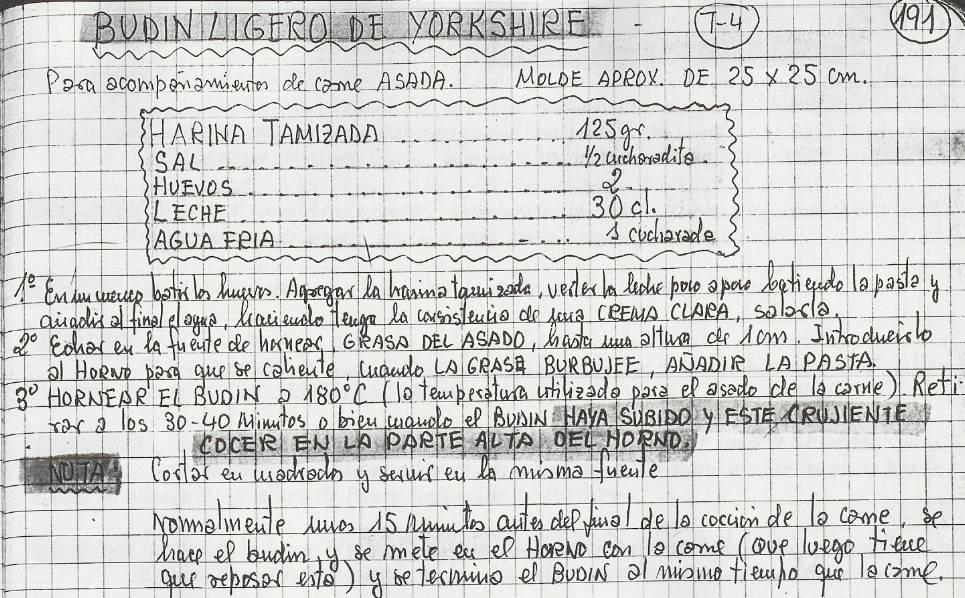 BUDIN LIGERO DE YORKSHIRE - T-4 191
Para acompañamiento de carne ASADA. MOLDE APROX. DE 25 x 25 cm.
HARINA TAMIZADA ............ 125 gr.
SAL ............ 1/2 cucharadita.
HUEVOS ............ 2
LECHE ............ 30 cl.
AGUA FRIA ............ 1 cucharada
1º En un cuenco batir los huevos. Agregar la harina tamizada, verter la leche poco a poco batiendo la pasta y
añadir al final el agua, haciendo tenga la consistencia de una CREMA CLARA, salarla.
2º Echar en la fuente de hornear, GRASA DEL ASADO, hasta una altura de 1 cm. Introducirlo
al HORNO para que se caliente, cuando LA GRASA BURBUJEE, AÑADIR LA PASTA.
3º HORNEAR EL BUDIN a 180°C (la temperatura utilizada para el asado de la carne). Reti-
rar a los 30-40 minutos o bien cuando el BUDIN HAYA SUBIDO Y ESTE CRUJIENTE
COCER EN LA PARTE ALTA DEL HORNO.
NOTA: Cortar en cuadrados y servir en la misma fuente
Normalmente unos 15 minutos antes del final de la cocción de la carne, se
hace el budin, y se mete en el HORNO con la carne (que luego tiene
que reposar esta) y se termina el BUDIN al mismo tiempo que la carne.